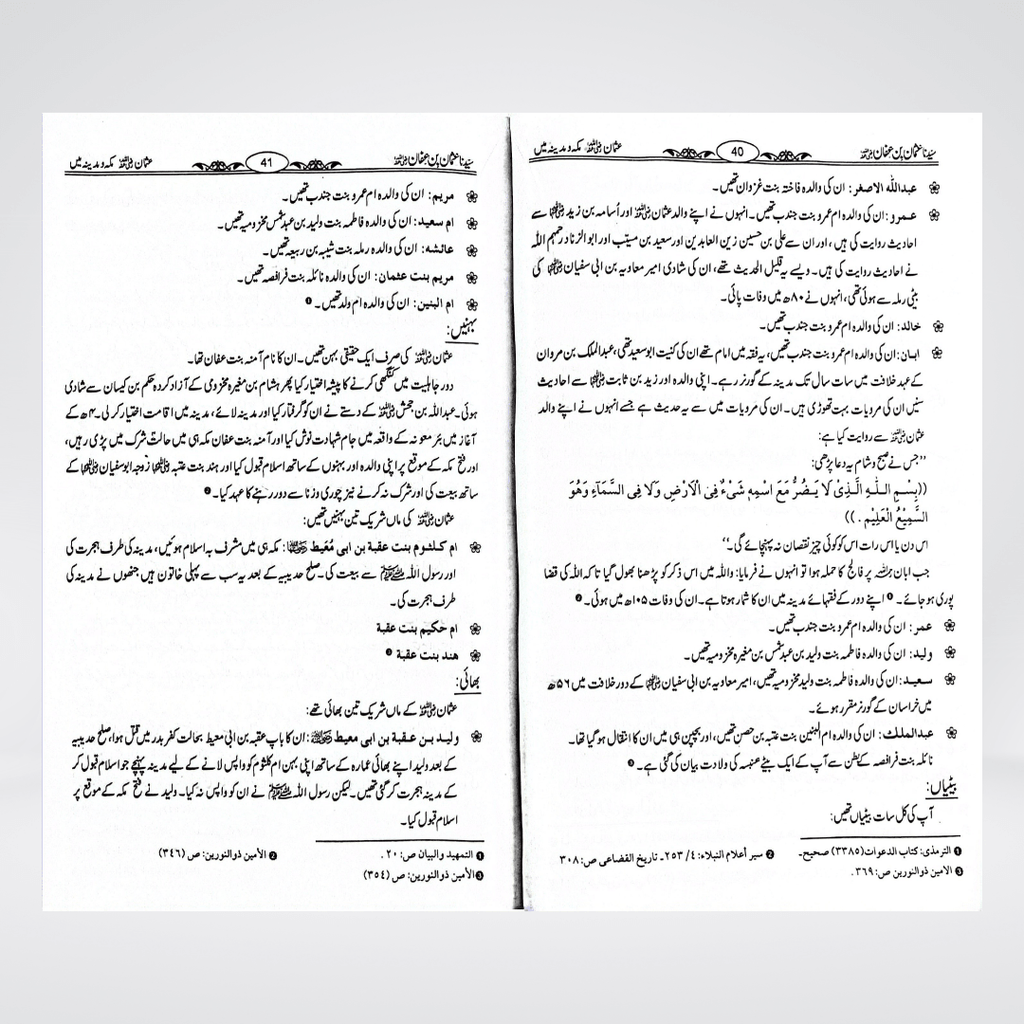 سیدنا عثمان بن عفان رضی اللہ عنہ 40 عثمان رضی اللہ عنہ مکہ و مدینہ میں
عبداللہ الاصغر: ان کی والدہ فاختہ بنت غزوان تھیں۔
عمرو: ان کی والدہ ام عمرو بنت جندب تھیں۔ انہوں نے اپنے والد عثمان رضی اللہ عنہ اور اُسامہ بن زید رضی اللہ عنہما سے
احادیث روایت کی ہیں، اور ان سے علی بن حسین زین العابدین اور سعید بن مسیّب اور ابوالزناد رحمہم اللہ
نے احادیث روایت کی ہیں۔ ویسے یہ قلیل الحدیث تھے، ان کی شادی امیر معاویہ بن ابی سفیان رضی اللہ عنہما کی
بیٹی رملہ سے ہوئی تھی، انہوں نے ۸۰ھ میں وفات پائی۔
خالد: ان کی والدہ ام عمرو بنت جندب تھیں۔
ابان: ان کی والدہ ام عمرو بنت جندب تھیں، یہ فقہ میں امام تھے ان کی کنیت ابوسعید تھی، عبدالملک بن مروان
کے عہد خلافت میں سات سال تک مدینہ کے گورنر رہے۔ اپنی والدہ اور زید بن ثابت رضی اللہ عنہما سے احادیث
سنیں ان کی مرویات بہت تھوڑی ہیں۔ ان کی مرویات میں سے یہ حدیث ہے جسے انہوں نے اپنے والد
عثمان رضی اللہ عنہ سے روایت کیا ہے:
”جس نے صبح و شام یہ دعا پڑھی:
((بِسْمِ اللهِ الَّذِیْ لَا یَضُرُّ مَعَ اسْمِهٖ شَیْءٌ فِی الْاَرْضِ وَلَا فِی السَّمَآءِ وَهُوَ
السَّمِیْعُ الْعَلِیْمِ .))
اس دن یا اس رات اس کو کوئی چیز نقصان نہ پہنچائے گی۔“
جب ابان رحمہ اللہ پر فالج کا حملہ ہوا تو انہوں نے فرمایا: واللہ میں اس ذکر کو پڑھنا بھول گیا تاکہ اللہ کی قضا
پوری ہو جائے۔ ❶ اپنے دور کے فقہائے مدینہ میں ان کا شمار ہوتا ہے۔ ان کی وفات ۱۰۵ھ میں ہوئی۔ ❷
عمر: ان کی والدہ ام عمرو بنت جندب تھیں۔
ولید: ان کی والدہ فاطمہ بنت ولید بن عبد شمس بن مغیرہ مخزومیہ تھیں۔
سعید: ان کی والدہ فاطمہ بنت ولید مخزومیہ تھیں، امیر معاویہ بن ابی سفیان رضی اللہ عنہما کے دور خلافت میں ۵۶ھ
میں خراسان کے گورنر مقرر ہوئے۔
عبدالملک: ان کی والدہ ام البنین بنت عتبہ بن حصن تھیں، اور بچپن ہی میں ان کا انتقال ہو گیا تھا۔
نائلہ بنت فرافصہ کے بطن سے آپ کے ایک بیٹے عنبسہ کی ولادت بیان کی گئی ہے۔ ❸
بیٹیاں:
آپ کی کل سات بیٹیاں تھیں:
❶ الترمذی: کتاب الدعوات (۳۳۸۵) صحیح۔ ❷ سیر أعلام النبلاء: ۴/ ۲۵۳۔ تاریخ القضاعی ص: ۳۰۸
❸ الامین ذوالنورین ص: ۳۶۹.
سیدنا عثمان بن عفان رضی اللہ عنہ 41 عثمان رضی اللہ عنہ مکہ و مدینہ میں
مریم: ان کی والدہ ام عمرو بنت جندب تھیں۔
ام سعید: ان کی والدہ فاطمہ بنت ولید بن عبد شمس مخزومیہ تھیں۔
عائشہ: ان کی والدہ رملہ بنت شیبہ بن ربیعہ تھیں۔
مریم بنت عثمان: ان کی والدہ نائلہ بنت فرافصہ تھیں۔
ام البنین: ان کی والدہ ام ولد تھیں۔ ❶
بہنیں:
عثمان رضی اللہ عنہ کی صرف ایک حقیقی بہن تھیں۔ ان کا نام آمنہ بنت عفان تھا۔
دور جاہلیت میں کنگھی کرنے کا پیشہ اختیار کیا پھر ہشام بن مغیرہ مخزومی کے آزاد کردہ حکم بن کیسان سے شادی
ہوئی۔ عبداللہ بن جحش رضی اللہ عنہ کے دستے نے ان کو گرفتار کیا اور مدینہ لائے، مدینہ میں اقامت اختیار کر لی۔ ۴ھ کے
آغاز میں بئر معونہ کے واقعہ میں جام شہادت نوش کیا اور آمنہ بنت عفان مکہ ہی میں حالت شرک میں پڑی رہیں،
اور فتح مکہ کے موقع پر اپنی والدہ اور بہنوں کے ساتھ اسلام قبول کیا اور ہند بنت عتبہ رضی اللہ عنہا زوجہ ابوسفیان رضی اللہ عنہ کے
ساتھ بیعت کی اور شرک نہ کرنے نیز چوری و زنا سے دور رہنے کا عہد کیا۔ ❷
عثمان رضی اللہ عنہ کی ماں شریک تین بہنیں تھیں:
ام کلثوم بنت عقبة بن ابی مُعَیط رضی اللہ عنہا: مکہ ہی میں مشرف بہ اسلام ہوئیں، مدینہ کی طرف ہجرت کی
اور رسول اللہ ﷺ سے بیعت کی۔ صلح حدیبیہ کے بعد یہ سب سے پہلی خاتون ہیں جنھوں نے مدینہ کی
طرف ہجرت کی۔
ام حکیم بنت عقبة
هند بنت عقبة ❸
بھائی:
عثمان رضی اللہ عنہ کے ماں شریک تین بھائی تھے:
ولید بن عقبة بن ابی معیط رضی اللہ عنہ: ان کا باپ عقبہ بن ابی معیط بحالت کفر بدر میں قتل ہوا، صلح حدیبیہ
کے بعد ولید اپنے بھائی عمارہ کے ساتھ اپنی بہن ام کلثوم کو واپس لانے کے لیے مدینہ پہنچے جو اسلام قبول کر
کے مدینہ ہجرت کر گئی تھیں۔ لیکن رسول اللہ ﷺ نے ان کو واپس نہ کیا۔ ولید نے فتح مکہ کے موقع پر
اسلام قبول کیا۔
❶ التمهید والبیان ص: ۲۰. ❷ الأمین ذوالنورین: ص (۳۴۶)
❸ الأمین ذوالنورین: ص (۳۵۴)